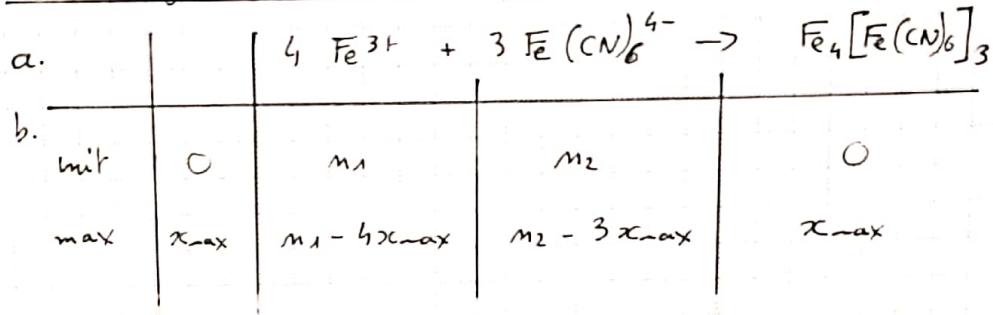 a. 4 Fe³⁺ + 3 Fe(CN)₆⁴⁻ → Fe₄[Fe(CN)₆]₃
b.
init 0 n₁ n₂ 0
max xmax n₁ - 4xmax n₂ - 3xmax xmax